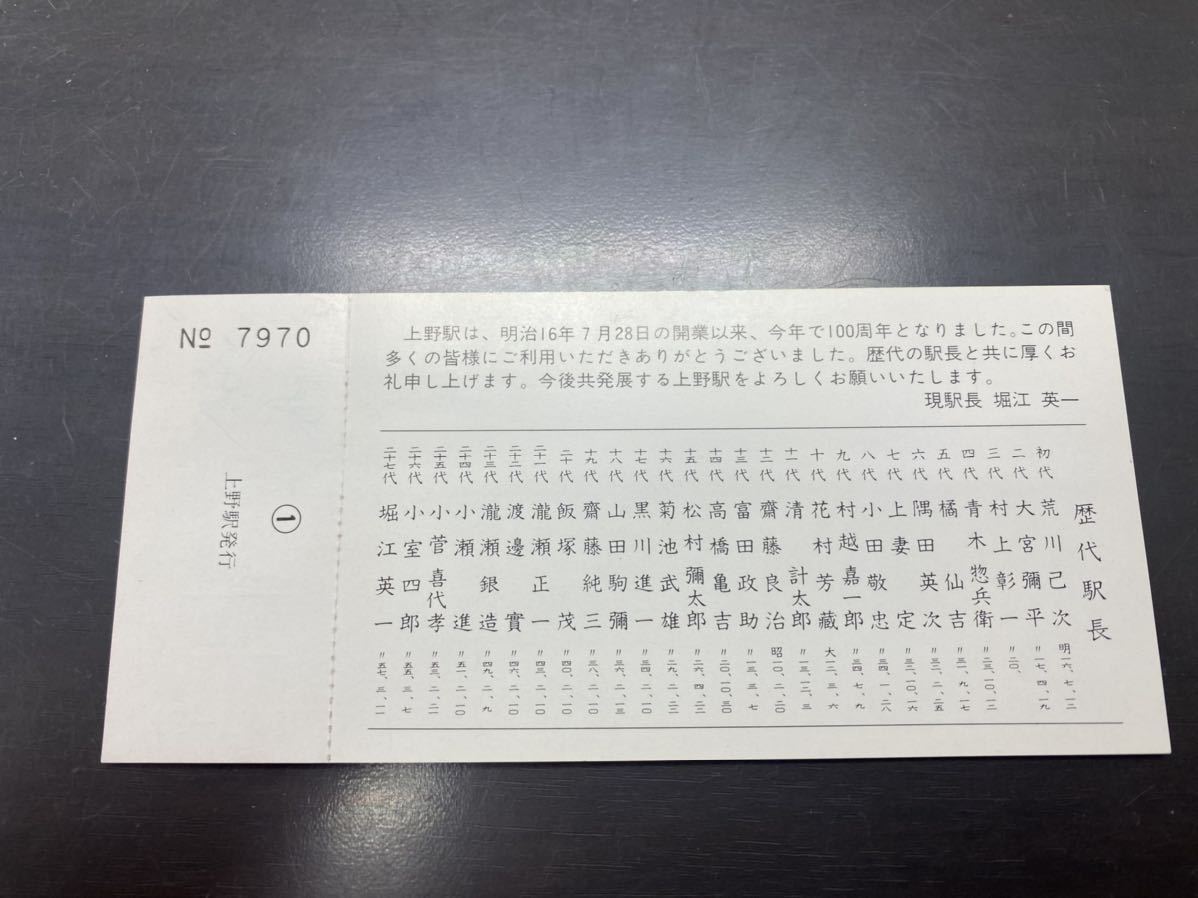 № 7970
上野駅は、明治16年7月28日の開業以来、今年で100周年となりました。この間
多くの皆様にご利用いただきありがとうございました。歴代の駅長と共に厚くお
礼申し上げます。今後共発展する上野駅をよろしくお願いいたします。
現駅長 堀江 英一
歴代駅長
初代 荒川己次 明一六、七、一二
二代 大宮彌平 〃一七、四、一九
三代 村上彰一 〃二〇、
四代 青木惣兵衛 〃二三、一〇、一二
五代 橘仙吉 〃三一、九、一七
六代 隅田英次 〃三二、二、二五
七代 上妻定 〃三二、一〇、一六
八代 小田敬忠 〃三四、一、二八
九代 村越嘉一郎 〃三四、七、九
十代 花村芳藏 大一二、三、六
十一代 清計太郎 〃一三、一二、三
十二代 齋藤良治 昭一〇、二、二〇
十三代 富田政助 〃一三、三、七
十四代 高橋亀吉 〃二〇、一〇、三〇
十五代 松村彌太郎 〃二六、四、二三
十六代 菊池武雄 〃二九、二、二三
十七代 黒川進一 〃三四、二、一〇
十八代 山田駒彌 〃三六、二、一三
十九代 齋藤純三 〃三八、二、一〇
二十代 飯塚茂 〃四〇、二、一〇
二十一代 瀧瀬正一 〃四三、二、一〇
二十二代 渡邊實 〃四六、二、一〇
二十三代 瀧瀬銀造 〃四九、二、九
二十四代 小瀬進 〃五一、二、一〇
二十五代 小菅喜代孝 〃五三、二、二一
二十六代 小室四郎 〃五五、三、七
二十七代 堀江英一 〃五七、三、一一
①
上野駅発行